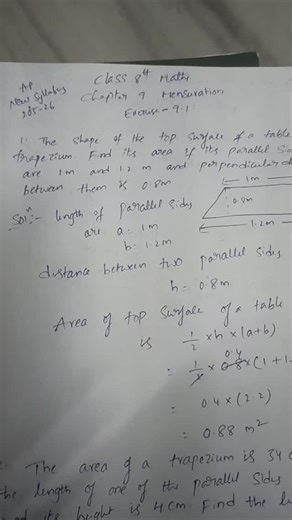 AP
New Syllabus
2025-26
Class 8th Maths
Chapter 9 Mensuration
Exercise - 9.1
1. The shape of the top surface of a table
trapezium. Find its area if its parallel
are 1m and 1.2 m and perpendicular
between them is 0.8m
1m
0.8m
1.2m
Soln:- length of parallel sides
are a = 1m
b = 1.2m
distance between two parallel sides
h = 0.8m
Area of top surface of a table
is 1/2 × h × (a+b)
= 1/2 × 0.8 × (1 + 1.
0.4
= 0.4 × (2.2)
= 0.88 m²
The area of a trapezium is 34
the length of one of the parallel sides
its height is 4cm. Find the